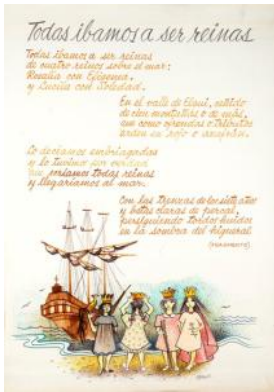 Todas ibamos a ser reinas
Todas ibamos a ser reinas
de cuatro reinos sobre el mar:
Rosalia con Efigenia,
y Lucila con Soledad.
En el valle de Elqui, ceñido
de cien montañas o de más,
que como ofrendas o tributos
arden en rojo o azafrán.
Lo decíamos embriagadas
y lo tuvimos por verdad
que seríamos todas reinas
y llegaríamos al mar.
Con las trenzas de los siete años
y batas claras de percal,
persiguiendo tordos huidos
en la sombra del higueral
(FRAGMENTO)